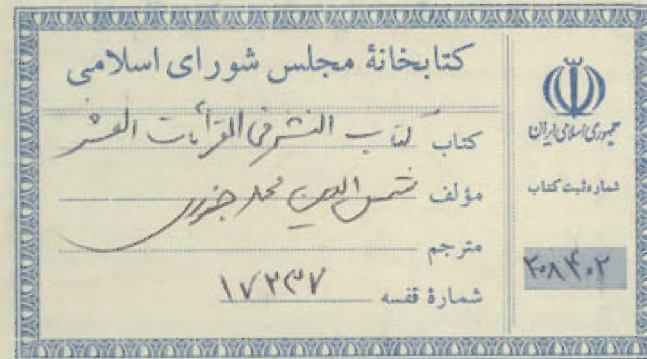 کتابخانهٔ مجلس شورای اسلامی
کتاب کتاب النشر فی القرأات العشر
مؤلف شمس الدین محمد جزری
مترجم
شمارهٔ قفسه ۱۷۲۳۷
جمهوری اسلامی ایران
شماره ثبت کتاب
۳۰۸۴۰۲